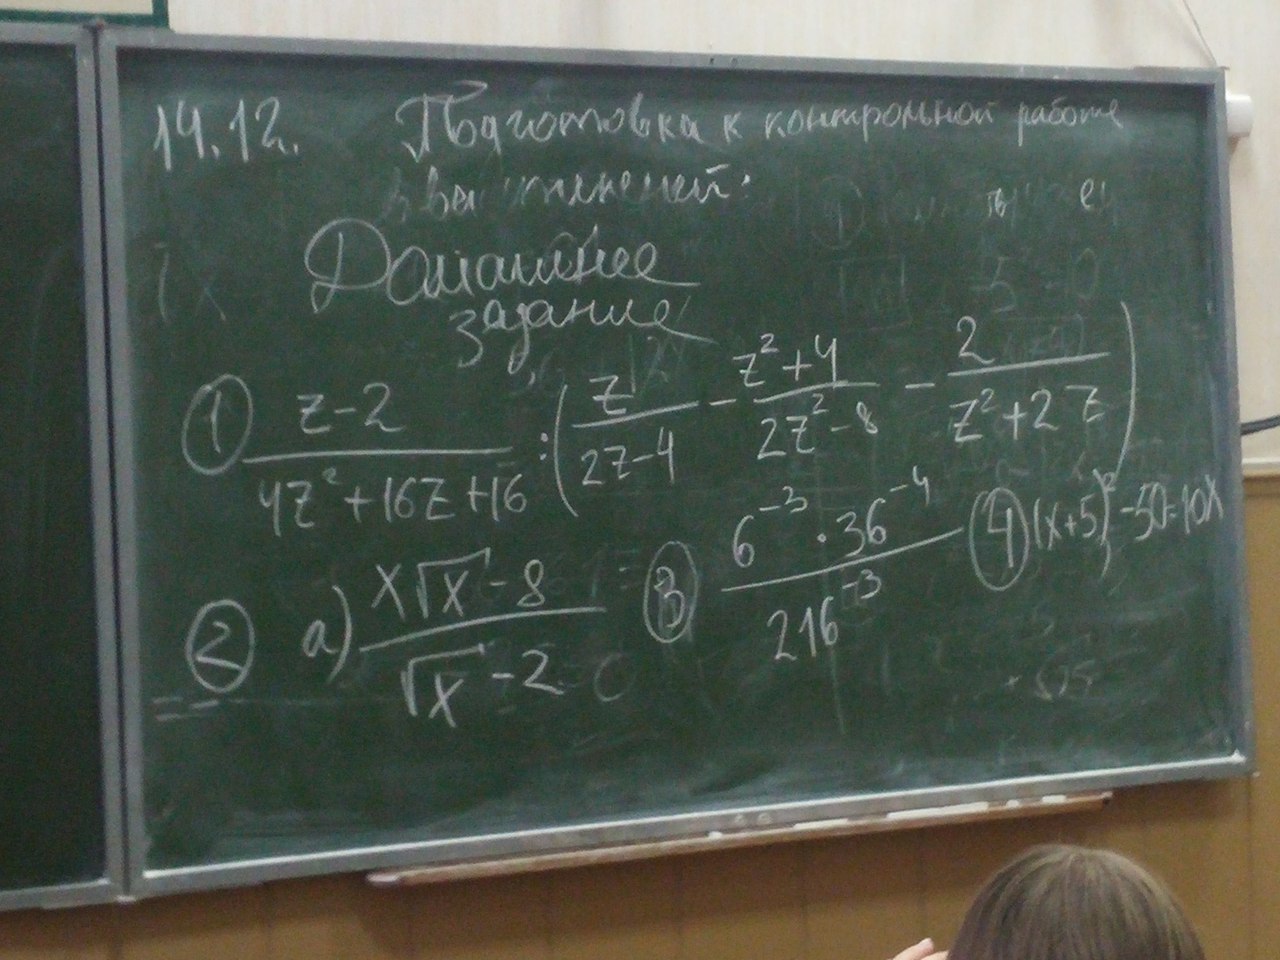 14.12. Подготовка к контрольной работе
Домашнее
задание
① (z-2)/(4z²+16z+16) : (z/(2z-4) - (z²+4)/(2z²-8) - 2/(z²+2z))
② а) (x√x-8)/(√x-2)
③ (6⁻³·36⁻⁴)/216⁻³
④ (x+5)²-50=10x